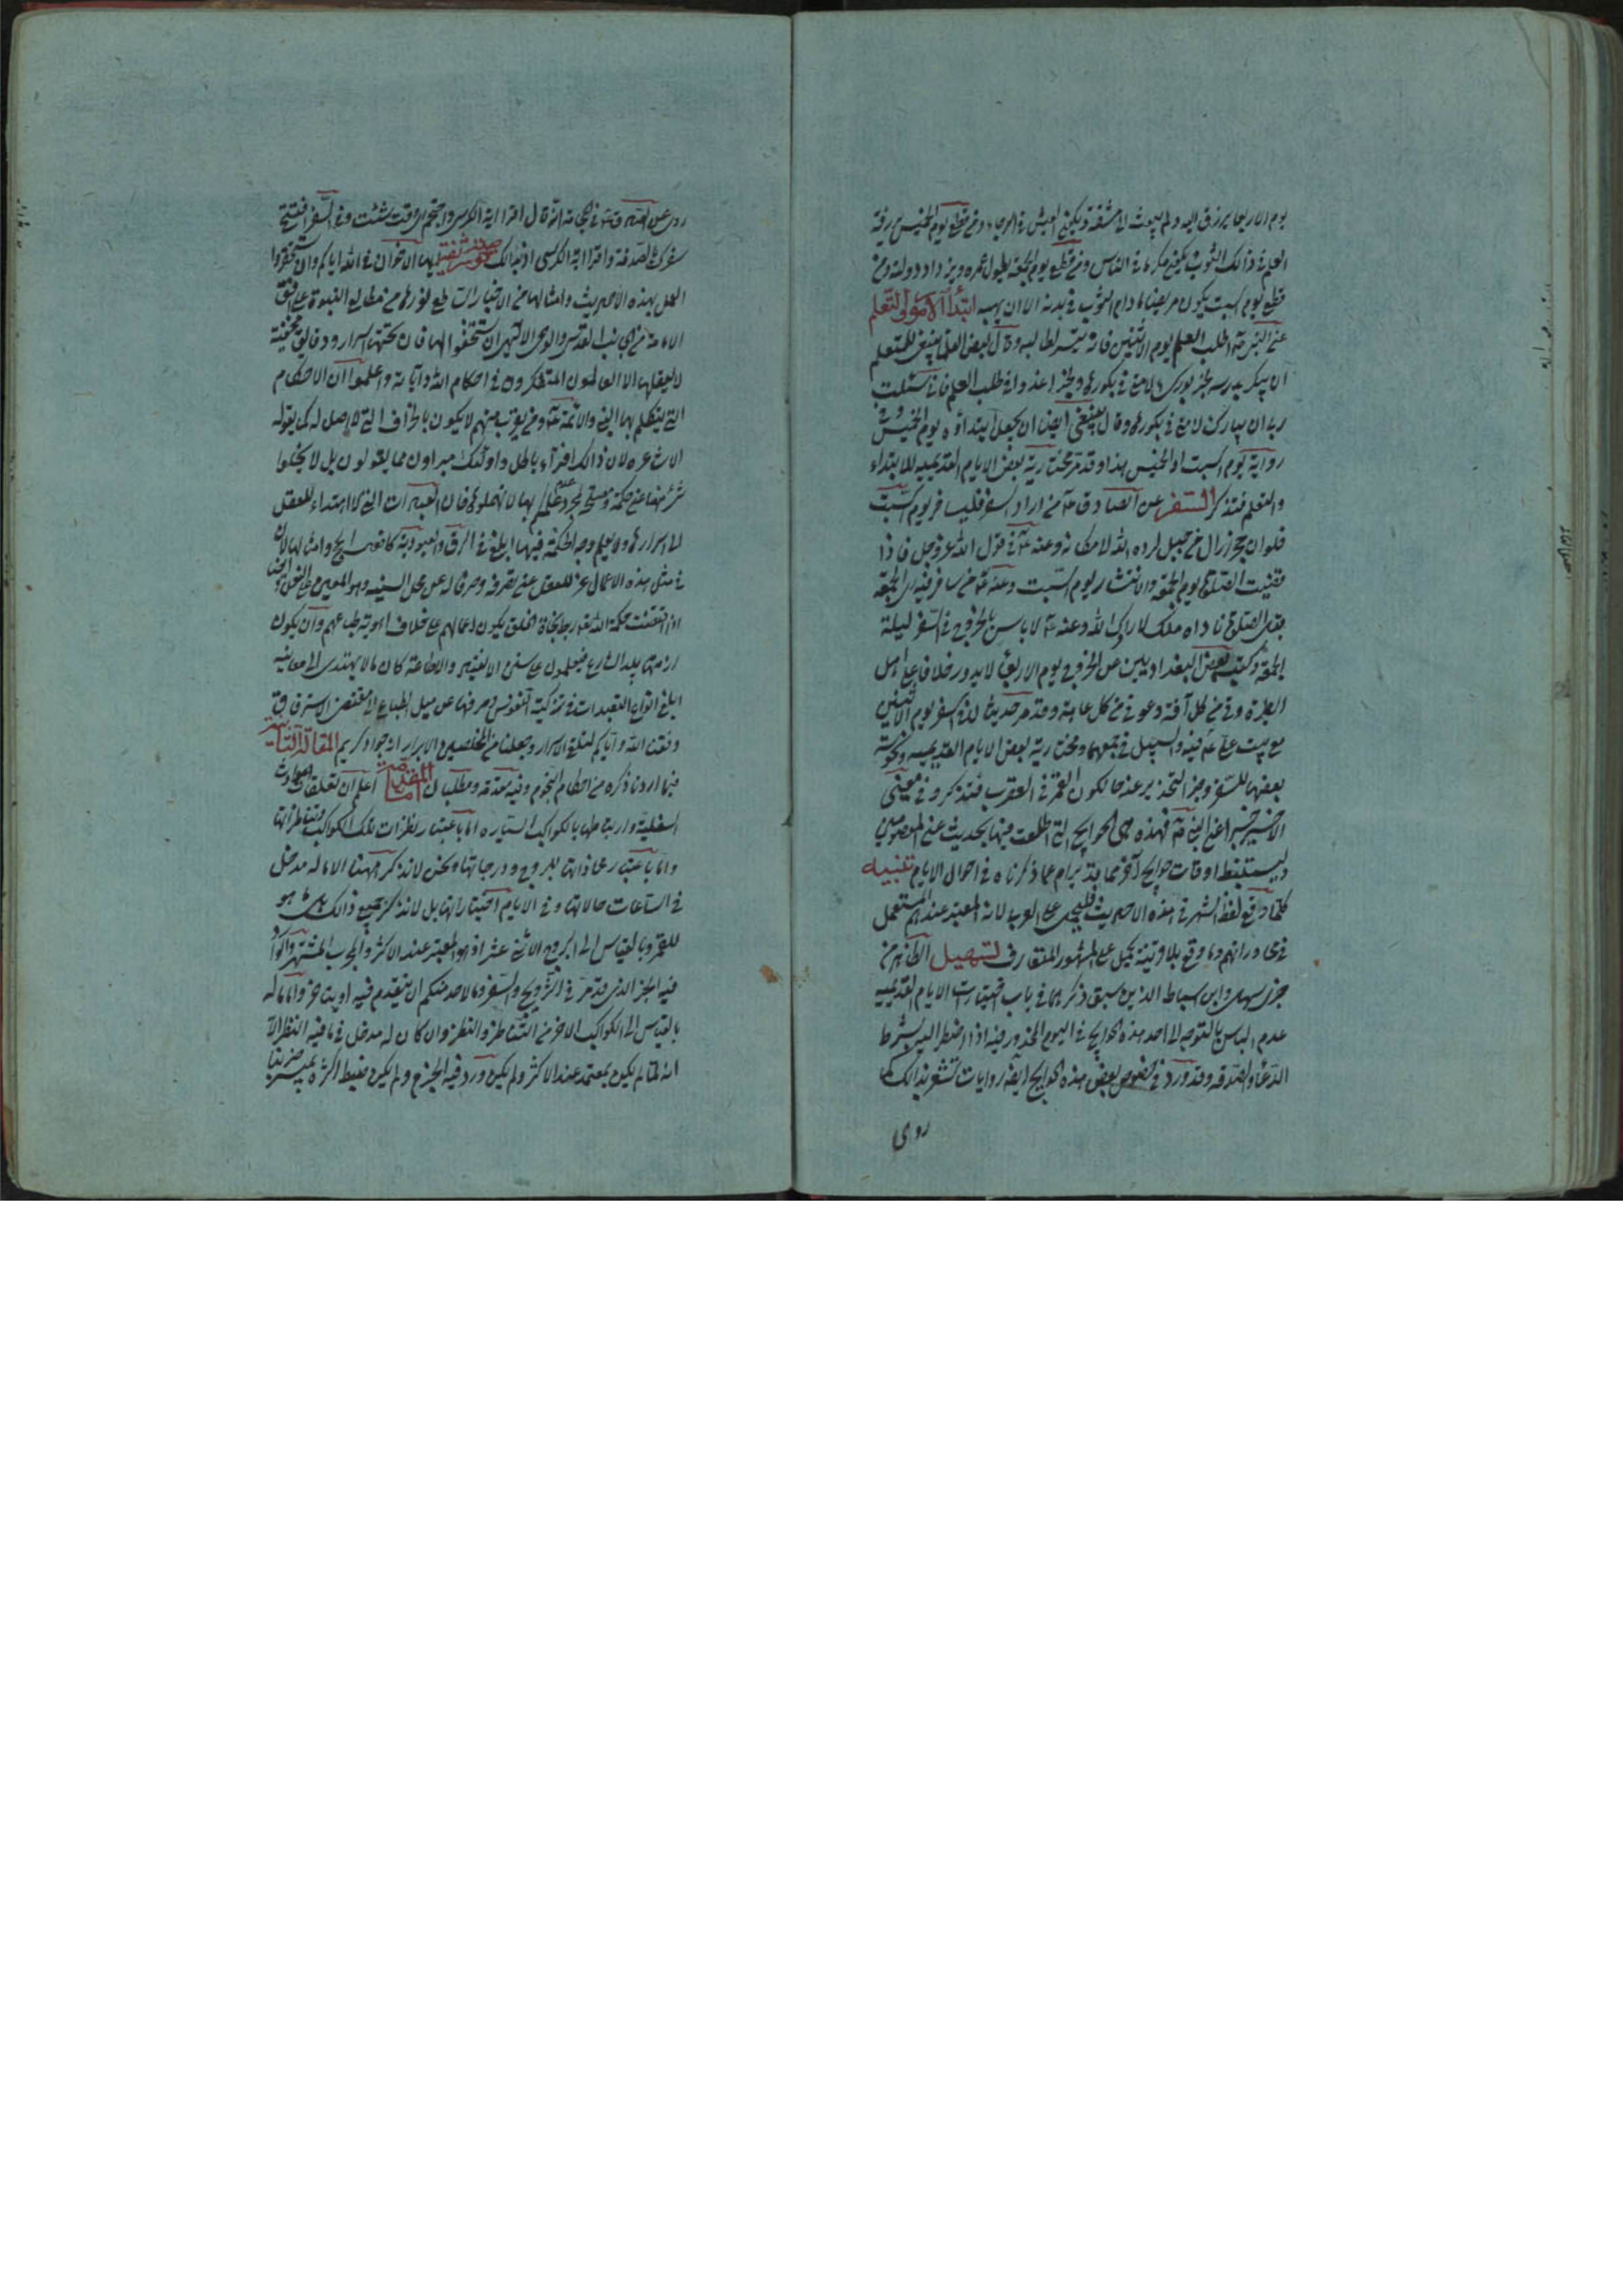 يوم الاربعا يرزق اليه ولم يبعث الى مشقة ويكون العيش في الرجاء ومن قطع يوم الخميس رزقه
العلم في ذالك الثوب يكون مكرما في الناس ومن قطع يوم الجمعة يطول عمره ويزداد دولته ومن
قطع يوم السبت يكون مريضا مادام الثوب في بدنه الا ان يهبه ابتدأ الامور التعلم
عن النبي صه اطلب العلم يوم الاثنين فانه ميسر لطالبه وقال بعض العلما ينبغي للمتعلم
ان يبكر بدرسه لخبر بورك لامتي في بكورها ولخبر اغدوا في طلب العلم فاني سئلت
ربي ان يبارك لامتي في بكورها وقال ينبغي ايضا ان يجعل ابتداؤه يوم الخميس وفي
رواية يوم السبت او الخميس هذا وقد مر مختارية بعض الايام القديميه للابتداء
والتعلم فتذكر السفر عن الصادق عه من اراد السفر فليسافر يوم السبت
فلو ان حجرا زال من جبل لرده الله لامكانه وعنه عه في قول الله عز وجل فاذا
قضيت الصلوة يوم الجمعة والانتشار يوم السبت وعنه عه من سافر فيه الجمعة
قبل الصلوة ناداه ملك لا ردك الله وعنه عه لا باس بالخروج في السفر ليلة
الجمعة وكتب بعض البغداديين عن الخروج يوم الاربعا لا يدور خلافا على اهل
الطيرة وقي من كل آفة وعوفي من كل عاهة وقد مر حديثا لذم السفر يوم الاثنين
مع بيت علي عه فيه والسبيل في جمعهما ومختارية بعض الايام القديميه ونحوسة
بعضها للسفر وخبر التحذير عنه حالكون القمر في العقرب فتذكر وفي معنى
الاخير خبرا عن النبي صه فهذه هي الحوايج التي اطلعت فيها بحديث عن المعصومين
وليستنبط اوقات حوايج آخر مما ذكرناه في احوال الايام تنبيه
كلما وقع لفظ الشهر في هذه الاحاديث فليجرى على العرب لانه المعتبر عندهم المستعمل
في محاوراتهم وما وقع بلا قرينة يحمل على المشهور المتعارف تسهيل الظاهر من
خبرى سهل وابن سباط الذين سبق ذكرهما في باب اختيارات الايام القديميه
عدم الباس بالتوجه الى احد هذه الحوايج في اليوم المحذور فيه اذا اضطر اليه بشرط
الدعا والصدقه وقد ورد في خصوص بعض هذه الحوايج ايضا روايات تشعر بذالك كما
روى
روى عن الصادق عه في الحجامة انه قال اقرا اية الكرسي واحتجم اى وقت شئت وفي السفر افتتح
سفرك بالصدقة واقرا اية الكرسي اذا بدالك ايها الاخوان في الله اياكم وان تستحقروا
العمل بهذه الاحاديث وامثالها من الاختيارات طلع نورها من مطالع النبوة على افق
الامامة من جانب القدس والوحى الالهى ان تستخفوا بها فان تحتها اسرار ودقايق خفية
لا يعقلها الا العالمون المتفكرون في احكام الله وآياته واعلموا ان الاحكام
التي يتكلم بها النبي والائمة عه ومن يقرب منهم لا يكون بالجزاف التي لا اصل له كما يقوله
الاشاعره لان ذالك افتراء باطل واولئك مبراون مما يقولون بل لا يحكموا
شئ منها عن حكمة ومصلحة لمجرد عدم علمكم بها لا تهملوها فان التعبدات التي لا اهتداء للعقل
الى اسرارها ولا يعلم وجه الحكمة فيها ابلغ في الرق والعبودية
في مثل هذه الاعمال عزل للعقل عن تصرفه وصرفا له عن محل
اذا اقتضت حكمة الله ربط نجاة الخلق بكون اعمالهم على خلاف اهوية طباعهم وان يكون
ازمتها بيد الشارع فيعملون على سنن الانقياد والاطاعة كان ما لا يهتدى الى معانيه
ابلغ انواع التعبدات في تزكية النفوس وصرفها عن ميل الطباع الى مقتضى الاسترقاق
وفقنا الله واياكم لتلقي الاسرار وجعلنا من المخلصين الابرار انه جواد كريم المقالة الثانية
فيما اردنا ذكره من احكام النجوم وفيه مقدمة ومطلبان اما المقدمة اعلم ان تعلقات الحوادث
السفلية وارتباطها بالكواكب السيارة اما باعتبار نظرات تلك الكواكب وتناظراتها
واما باعتبار محاذاتها للبروج ودرجاتها ونحن لا نذكر ههنا الا ما له مدخل
في الساعات حالاتها وفي الايام اختياراتها بل لا نذكر جميع ذالك بل ما هو
للقمر وبالقياس الى البروج الاثنى عشر اذ هو المعتبر عند الاكثر والمجرب المشتهر
فيه الخبر الذى قد مر في التزويج والسفر وما لاحد منكم ان يتقدم فيه او يتاخر واما ما له
بالقياس الى الكواكب الاخر من التناظر والنظر وان كان له مدخل في ما فيه النظر الا
انه لما لم يكن بمعتمد عند الاكثر ولم يكن ورد فيه الخبر ولم يكن ضبط اكثره بميسر